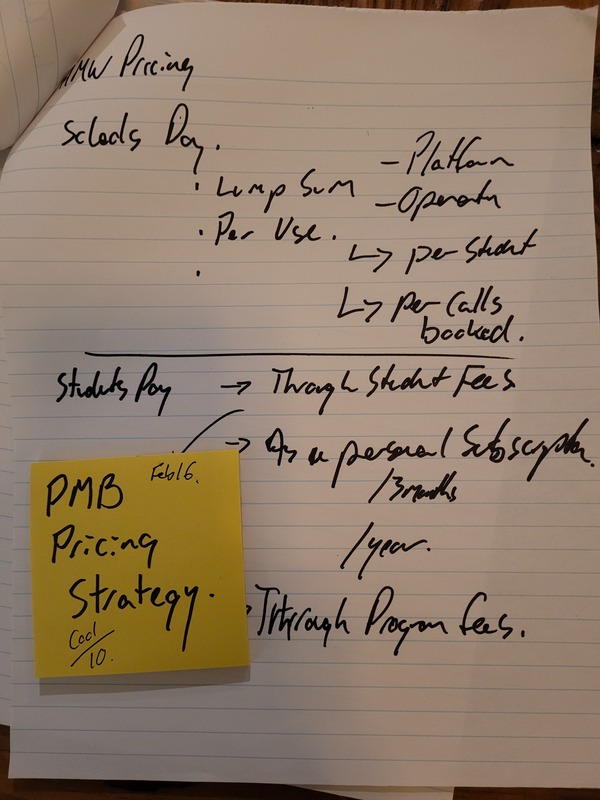 HMW Pricing
Schools Pay.
- Platform
· Lump Sum
- Operator
· Per Use.
↳ per Student
·
↳ per Calls
booked.
Students Pay → Through Student Fees
→ As a personal Subscription.
/3 months
/year.
Through Program Fees.
PMB Feb 16.
Pricing
Strategy.
Cool/10.